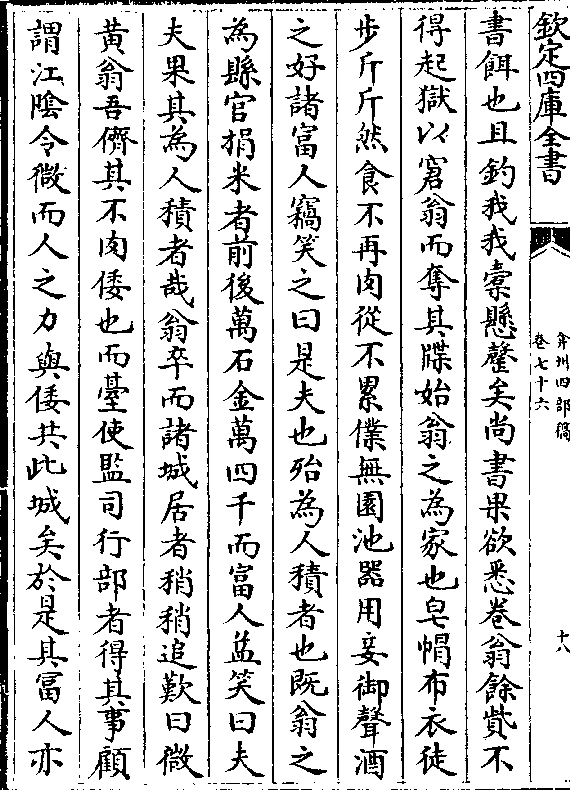 欽定四庫全書
弇州四部稿
卷七十六
十八
書餌也且釣我我橐懸罄矣尚書果欲悉卷翁餘貲不
得起獄以窘翁而奪其牒始翁之為家也皂帽布衣徒
步斤斤然食不再肉從不累僕無園池器用妾御聲酒
之好諸富人竊笑之曰是夫也殆為人積者也既翁之
為縣官捐米者前後萬石金萬四千而富人益笑曰夫
夫果其為人積者哉翁卒而諸城居者稍稍追歎曰微
黄翁吾儕其不肉倭也而臺使監司行部者得其事顧
謂江陰令微而人之力與倭共此城矣於是其富人亦